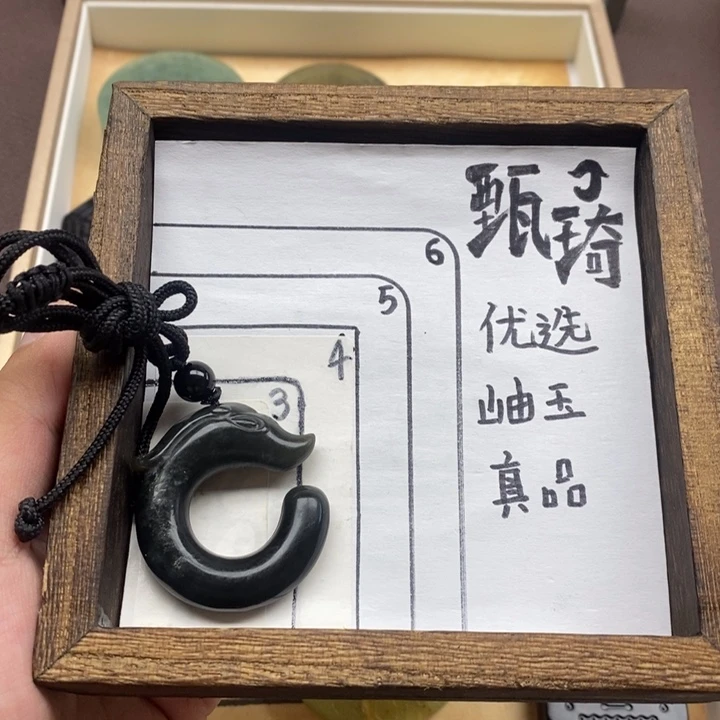 甄琦
优选
岫玉
真品
6
5
4
3